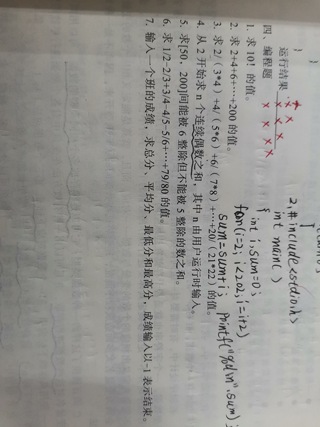 }
}
运行结果
四、编程题
1. 求 10! 的值。
2. 求 2+4+6+…+200 的值。
3. 求 2/(3*4)+4/(5*6)+6/(7*8)+…+20/(21*22) 的值。
4. 从 2 开始求 n 个连续偶数之和，其中 n 由用户运行时输入。
5. 求[50，200]间能被 6 整除但不能被 5 整除的数之和。
6. 求 1/2-2/3+3/4-4/5-5/6+…+79/80 的值。
7. 输入一个班的成绩，求总分、平均分、最低分和最高分，成绩输入以-1 表示结束。
2. #include<stdio.h>
int main( )
{
int i, sum=0;
for(i=2; i<202; i=i+2)
sum=sum+i;
printf("%d\n",sum)